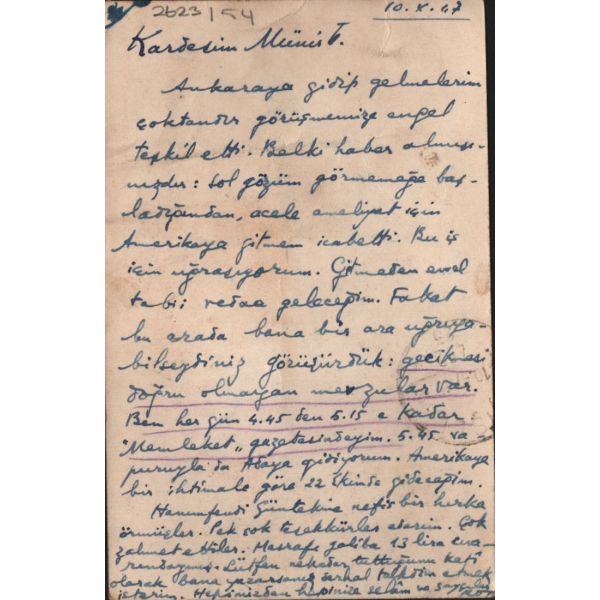 2623/54
10.X.47
Kardeşim Münis F.
Ankaraya gidip gelmelerim
çoktandır görüşmemize engel
teşkil etti. Belki haber almışsı-
nızdır: sol gözüm görmemeğe baş-
ladığından, acele ameliyat için
Amerikaya gitmem icabetti. Bu iş
için uğraşıyorum. Gitmeden evvel
tabii vedaa geleceğim. Fakat
bu arada bana bir ara uğrıya-
bilseydiniz görüşürdük: gecikmesi
doğru olmayan mevzular var.
Ben her gün 4.45 den 5.15 e kadar
"Memleket" gazetesindeyim. 5.45 va-
puruyla da Adaya gidiyorum. Amerikaya
bir ihtimale göre 22 Ekimde gideceğim.
Hanımfendi Güntekine nefis bir hırka
örmüşler. Pek çok teşekkürler ederim. Çok
zahmet ettiler. Masrafı galiba 13 lira cıva-
rındaymış. Lütfen nekadar tuttuğunu kat'î
olarak bana yazarsanız derhal takdim etmek
isterim. Hepimizden hepinize selâm ve saygılar